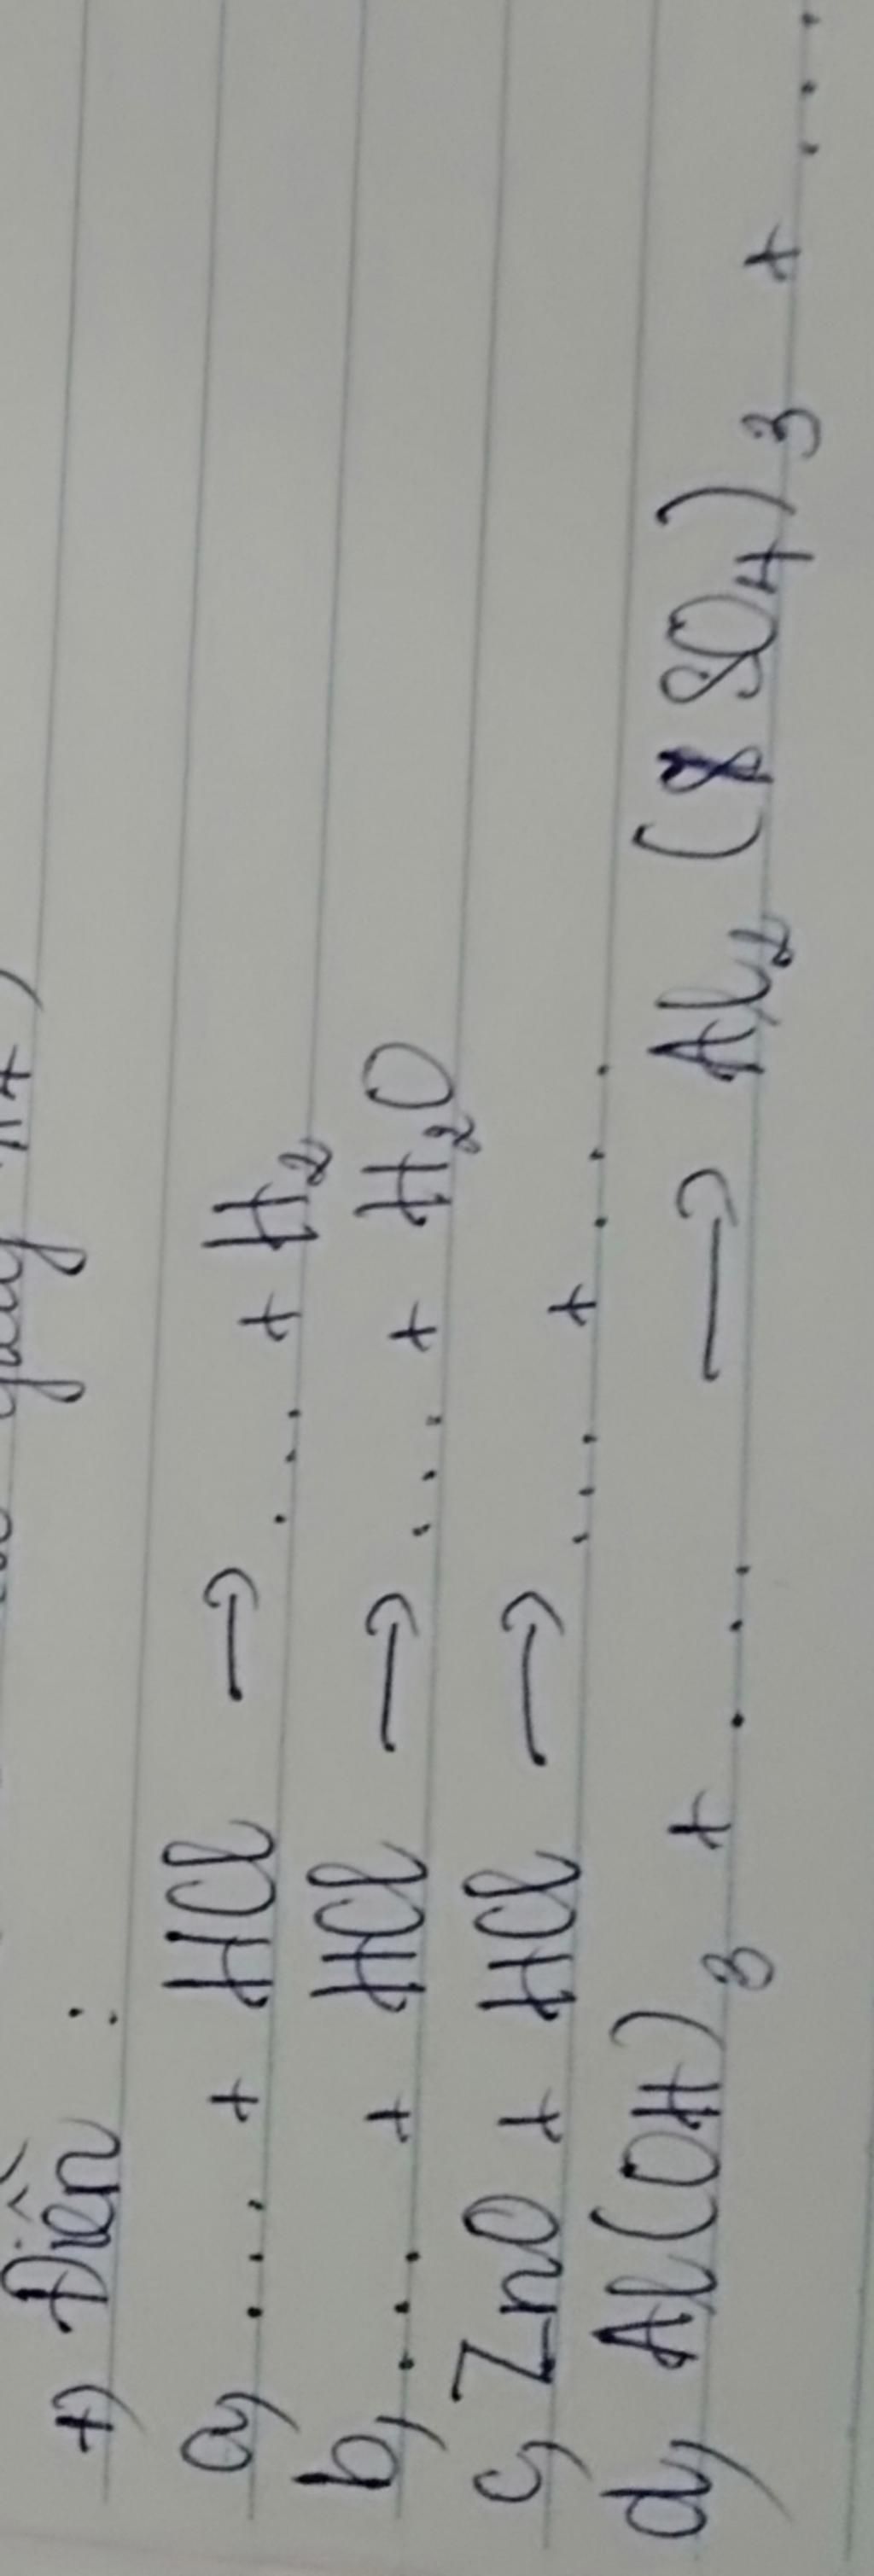 +) Điền :
a, ... + HCl → ... + H₂
b, ... + HCl → ... + H₂O
c, ZnO + HCl → ... + ...
d, Al(OH)₃ + ... → Al₂(SO₄)₃ + ...